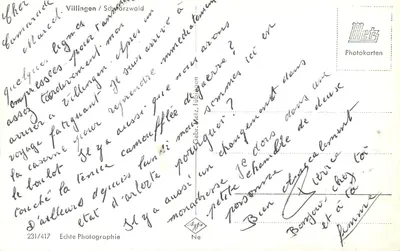 Villingen / Schwarzwald
Cher
Camarade
Marcel.
Quelques lignes
empressées pour t'annoncer
assez tardivement mon
arrivée à Villingen. Après un
voyage fatiguant je suis arrivé à
la caserne pour reprendre immédiatement
le boulot. Il y a aussi que nous avons
touché la tenue camouflée de guerre?
D'ailleurs depuis lundi nous sommes ici en
état d'alerte pourquoi?
Il y a aussi un changement dans
je dors dans une
petite chambre de deux
personnes
Bien amicalement
Pierre
Bonjour chez toi
et à ta
femme
Metz
Photokarten
231/417 Echte Photographie
Agfa